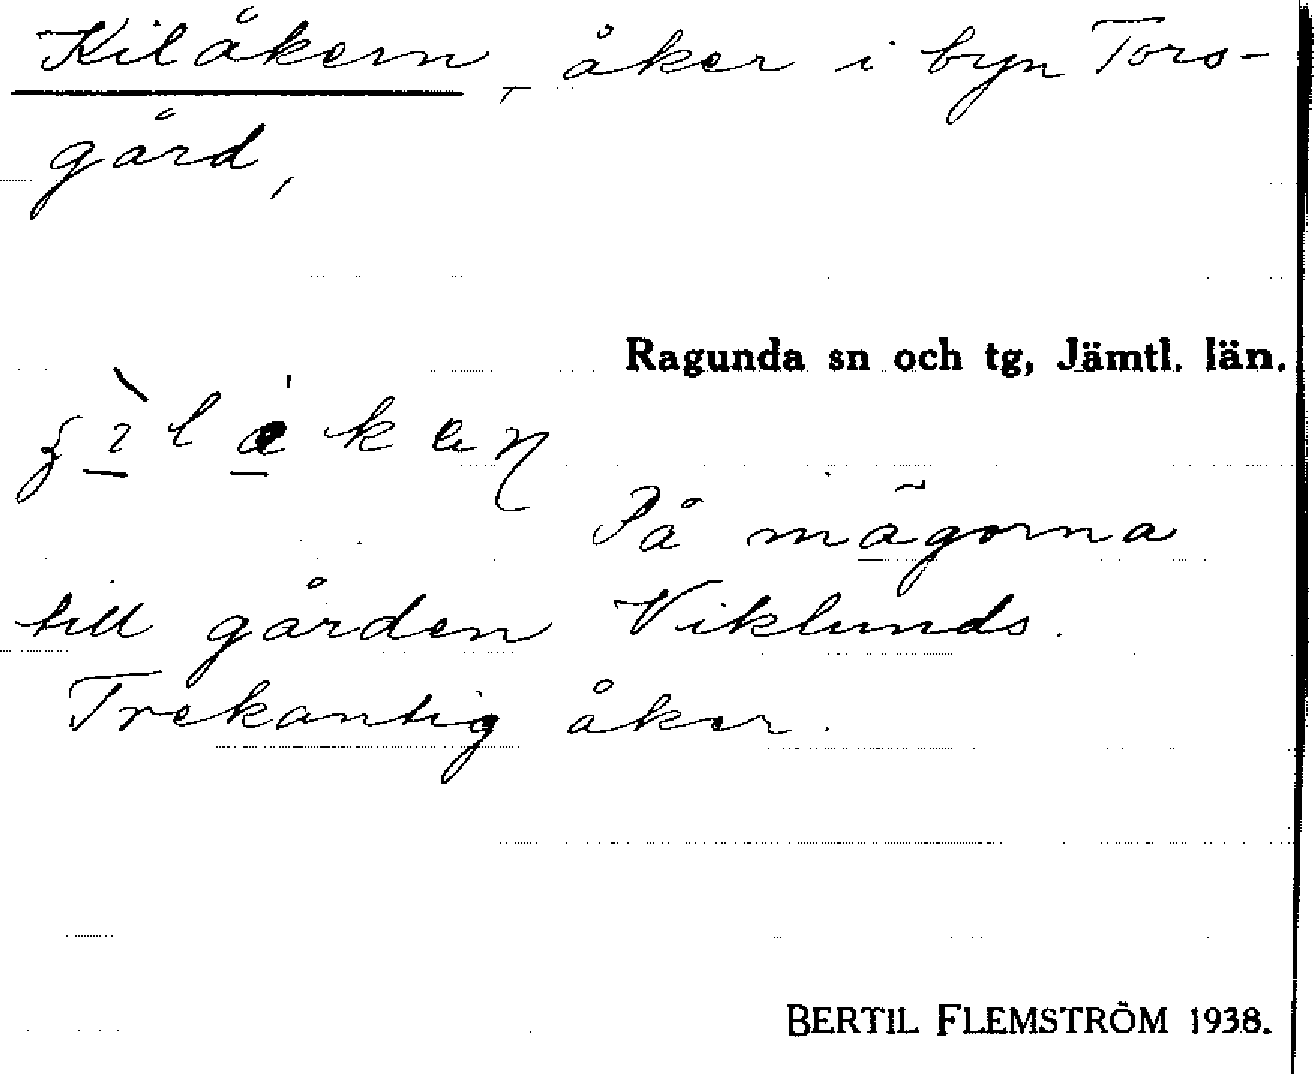 Kilåkern, åker i byn Tors-
gård,
Ragunda sn och tg, Jämtl. län.
På mägorna
till gården Viklunds.
Trekantig åker.
BERTIL FLEMSTRÖM 1938.